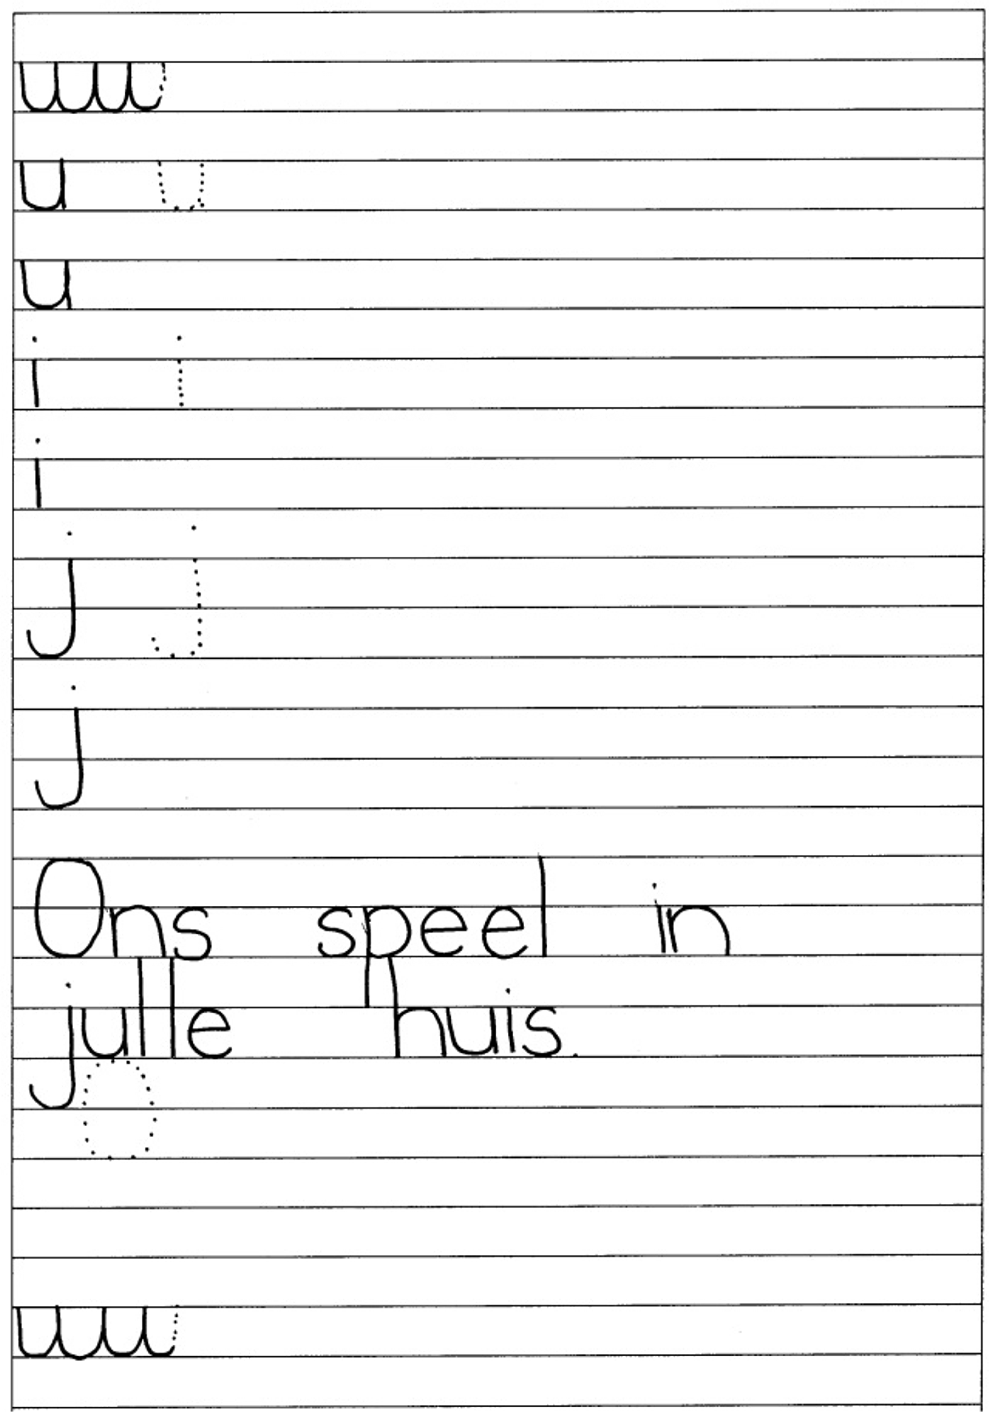 uuuu
u u
u
i i
i
j j
j
Ons speel in
julle huis.
O
uuuu